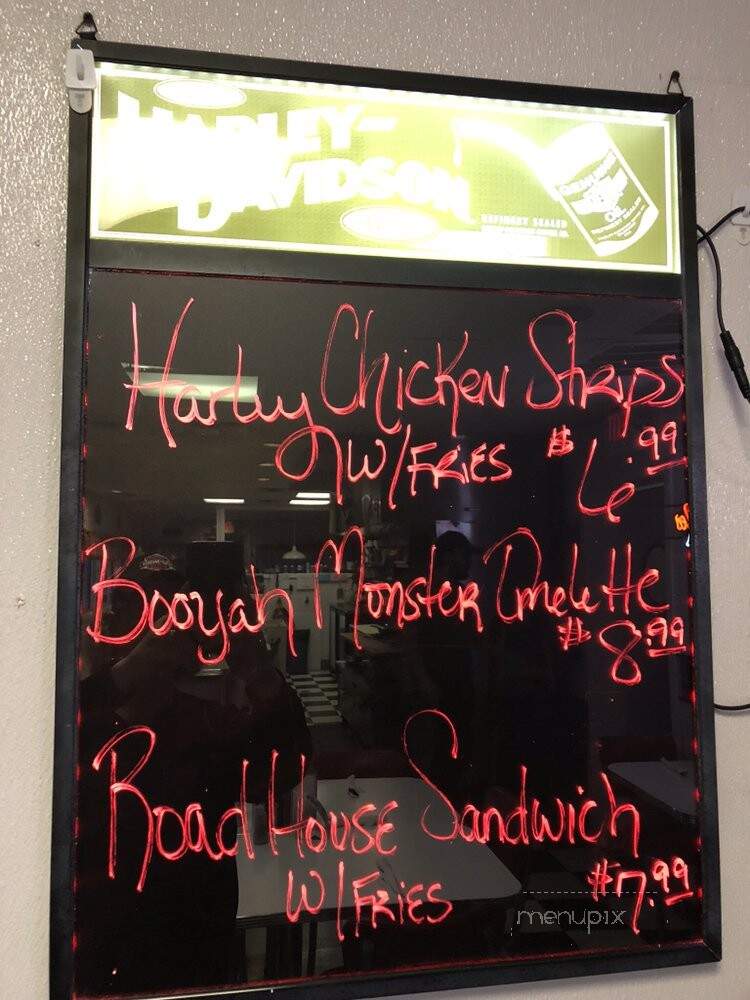 HARLEY-
DAVIDSON
REFINERY SEALED
Harley Chicken Strips
W/FRIES $6.99
Booyah Monster Omelette
$8.99
Road House Sandwich
W/FRIES $7.99
menupix